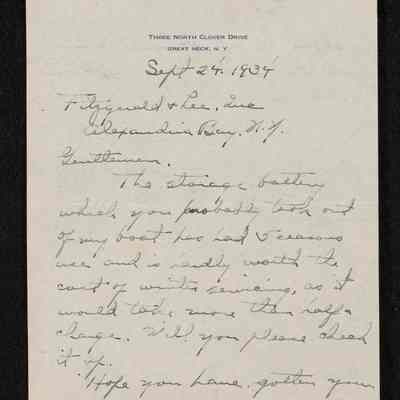 THREE NORTH CLOVER DRIVE
GREAT NECK, N. Y.
Sept 24. 1934
Fitzgerald & Lee, Inc
Alexandria Bay, N.Y.
Gentlemen.
The storage battery
which you probably took out
of my boat has had 5 seasons
use and is hardly worth the
cost of winter servicing, as it
would take more than half
charge. Will you please check
it up.
Hope you have gotten your